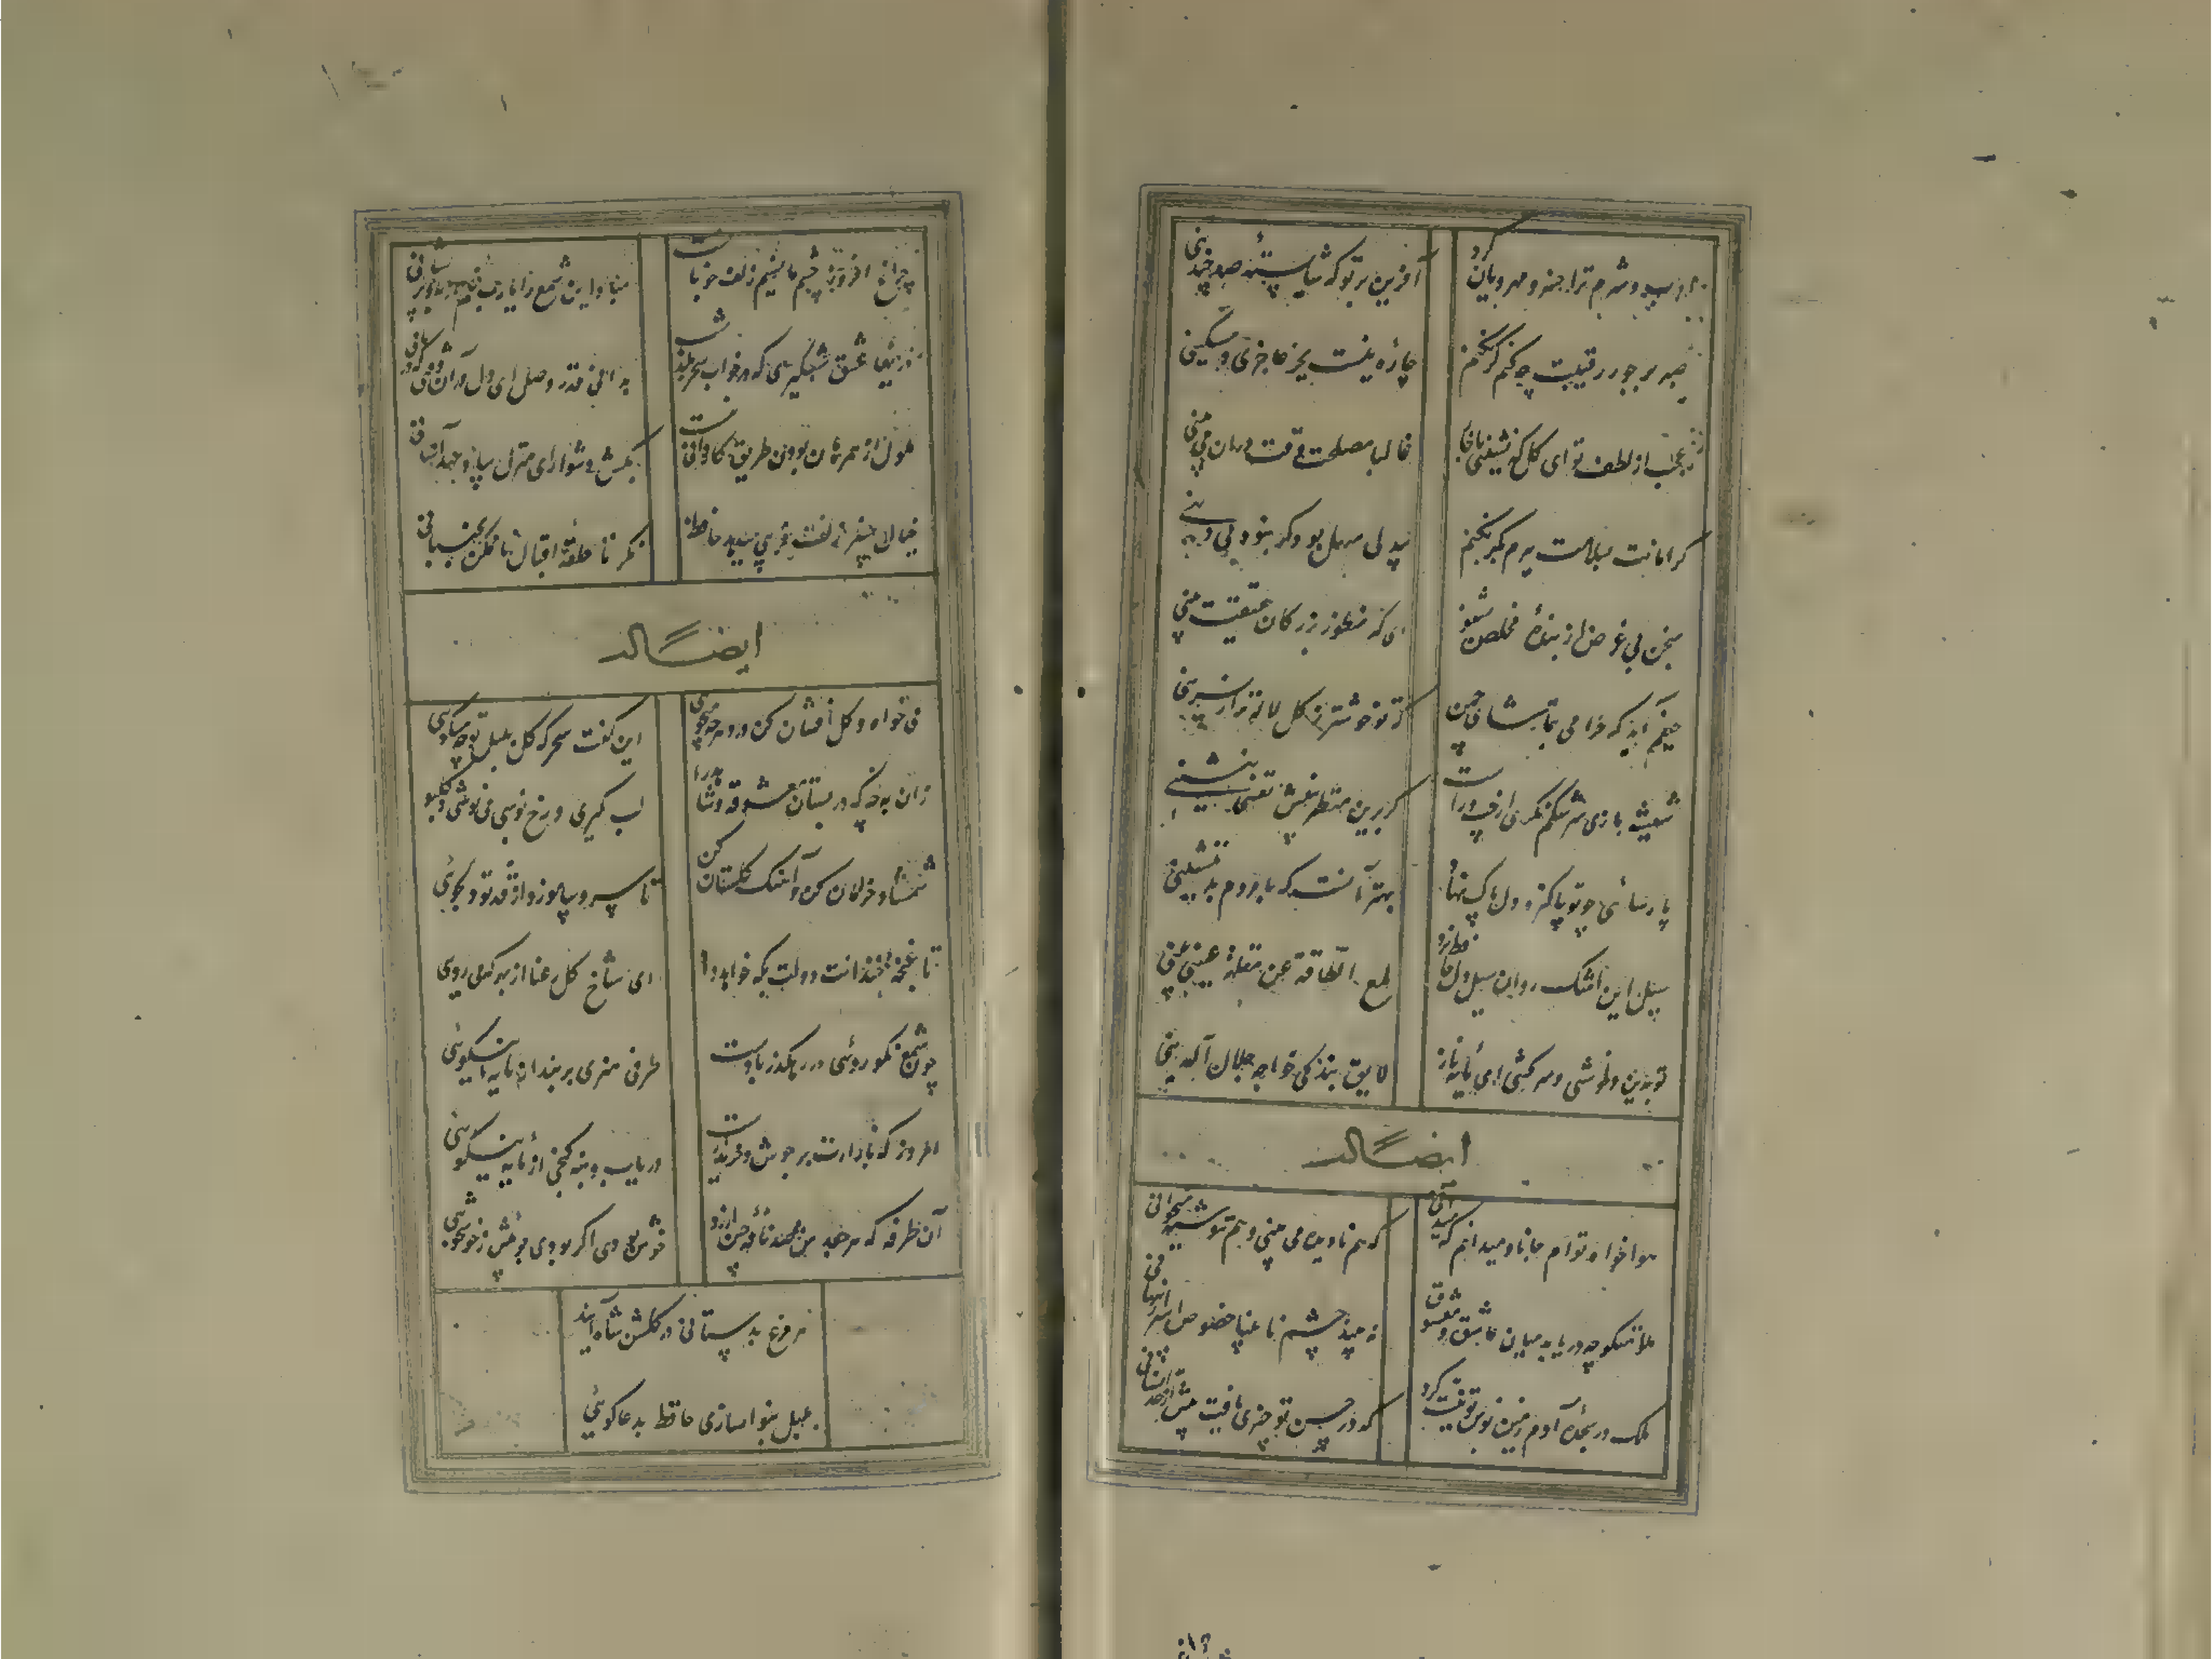 ادب و شرم ترا خسرو مهرویان کرد
آفرین بر تو که شایستهٔ صد چندینی
صبر بر جور رقیبت چکنم گر نکنم
چاره نیست بجز عاجزی و مسکینی
عجب از لطف تو ای گل که نشینی با خار
غالبا مصلحت وقت در آن می بینی
گر امانت بسلامت ببرم گیر نکنم
بیدلی سهل بود گر نبود بی دینی
سخن بی غرض از بندهٔ مخلص بشنو
ای که منظور بزرگان حقیقت بینی
حیفم آید که خرامی بتماشای چمن
که تو خوشتر ز گل و تازه تر از نسرینی
شیشه بازی سرشکم نگری از چپ و راست
گر برین منظر بینش نفسی بنشینی
پارسائی چو تو پاکیزه دل پاک نهاد
بهتر آنست که با مردم بد ننشینی
سیل این اشک روان سیل دل حافظ برد
بلغ الطاقة عن مقلة عینی بینی
تو بدین دلکشی و سرکشی ای مایهٔ ناز
لایق بندگی خواجه جلال الدینی
ایضاً له
هواخواه توام جانا و میدانم که میدانی
که هم نادیده می بینی و هم ننوشته میخوانی
ملامتگو چه دریابد میان عاشق و معشوق
نه بیند چشم نابینا خصوص اسرار پنهانی
ملک در سجدهٔ آدم زمین بوس تو نیت کرد
که در حسن تو چیزی یافت بیش از حد انسانی
چراغ افروز چشم ما نسیم زلف خوبانست
مبادا این شمع را یارب غم از باد پریشانی
دریغا عیش شبگیری که در خواب سحر بگذشت
بدانی قدر وصل ای دل در آن وقتی که درمانی
ملول از همرهان بودن طریق کاردانی نیست
بکش دشواری منزل بیاد عهد آسانی
خیال چنبر زلفت فریبی میدهد حافظ
نگر تا حلقهٔ اقبال ناممکن نجنبانی
ایضاً له
می خواه و گل افشان کن از دهر چه میجوئی
این گفت سحرگه گل بلبل تو چه میگوئی
مسند بگلستان بر تا شاهد و ساقی را
لب گیری و رخ بوسی می نوشی و گل بوئی
شمشاد خرامان کن و آهنگ گلستان کن
تا سرو بیاموزد از قد تو دلجوئی
تا غنچه خندانت دولت بکه خواهد داد
ای شاخ گل رعنا از بهر که می روئی
چون شمع نکوروئی در رهگذر بادست
طرف هنری بربند از مایه نیکوئی
امروز که بازارت پر جوش خریدارست
دریاب و بنه گنجی از مایه نیکوئی
آن طرفه که هر جعدش صد نافهٔ چین ارزد
خوش بودی اگر بودی بوئیش ز خوشخوئی
هر مرغ بدستانی در گلشن شاه آید
بلبل بنواسازی حافظ بدعا گوئی